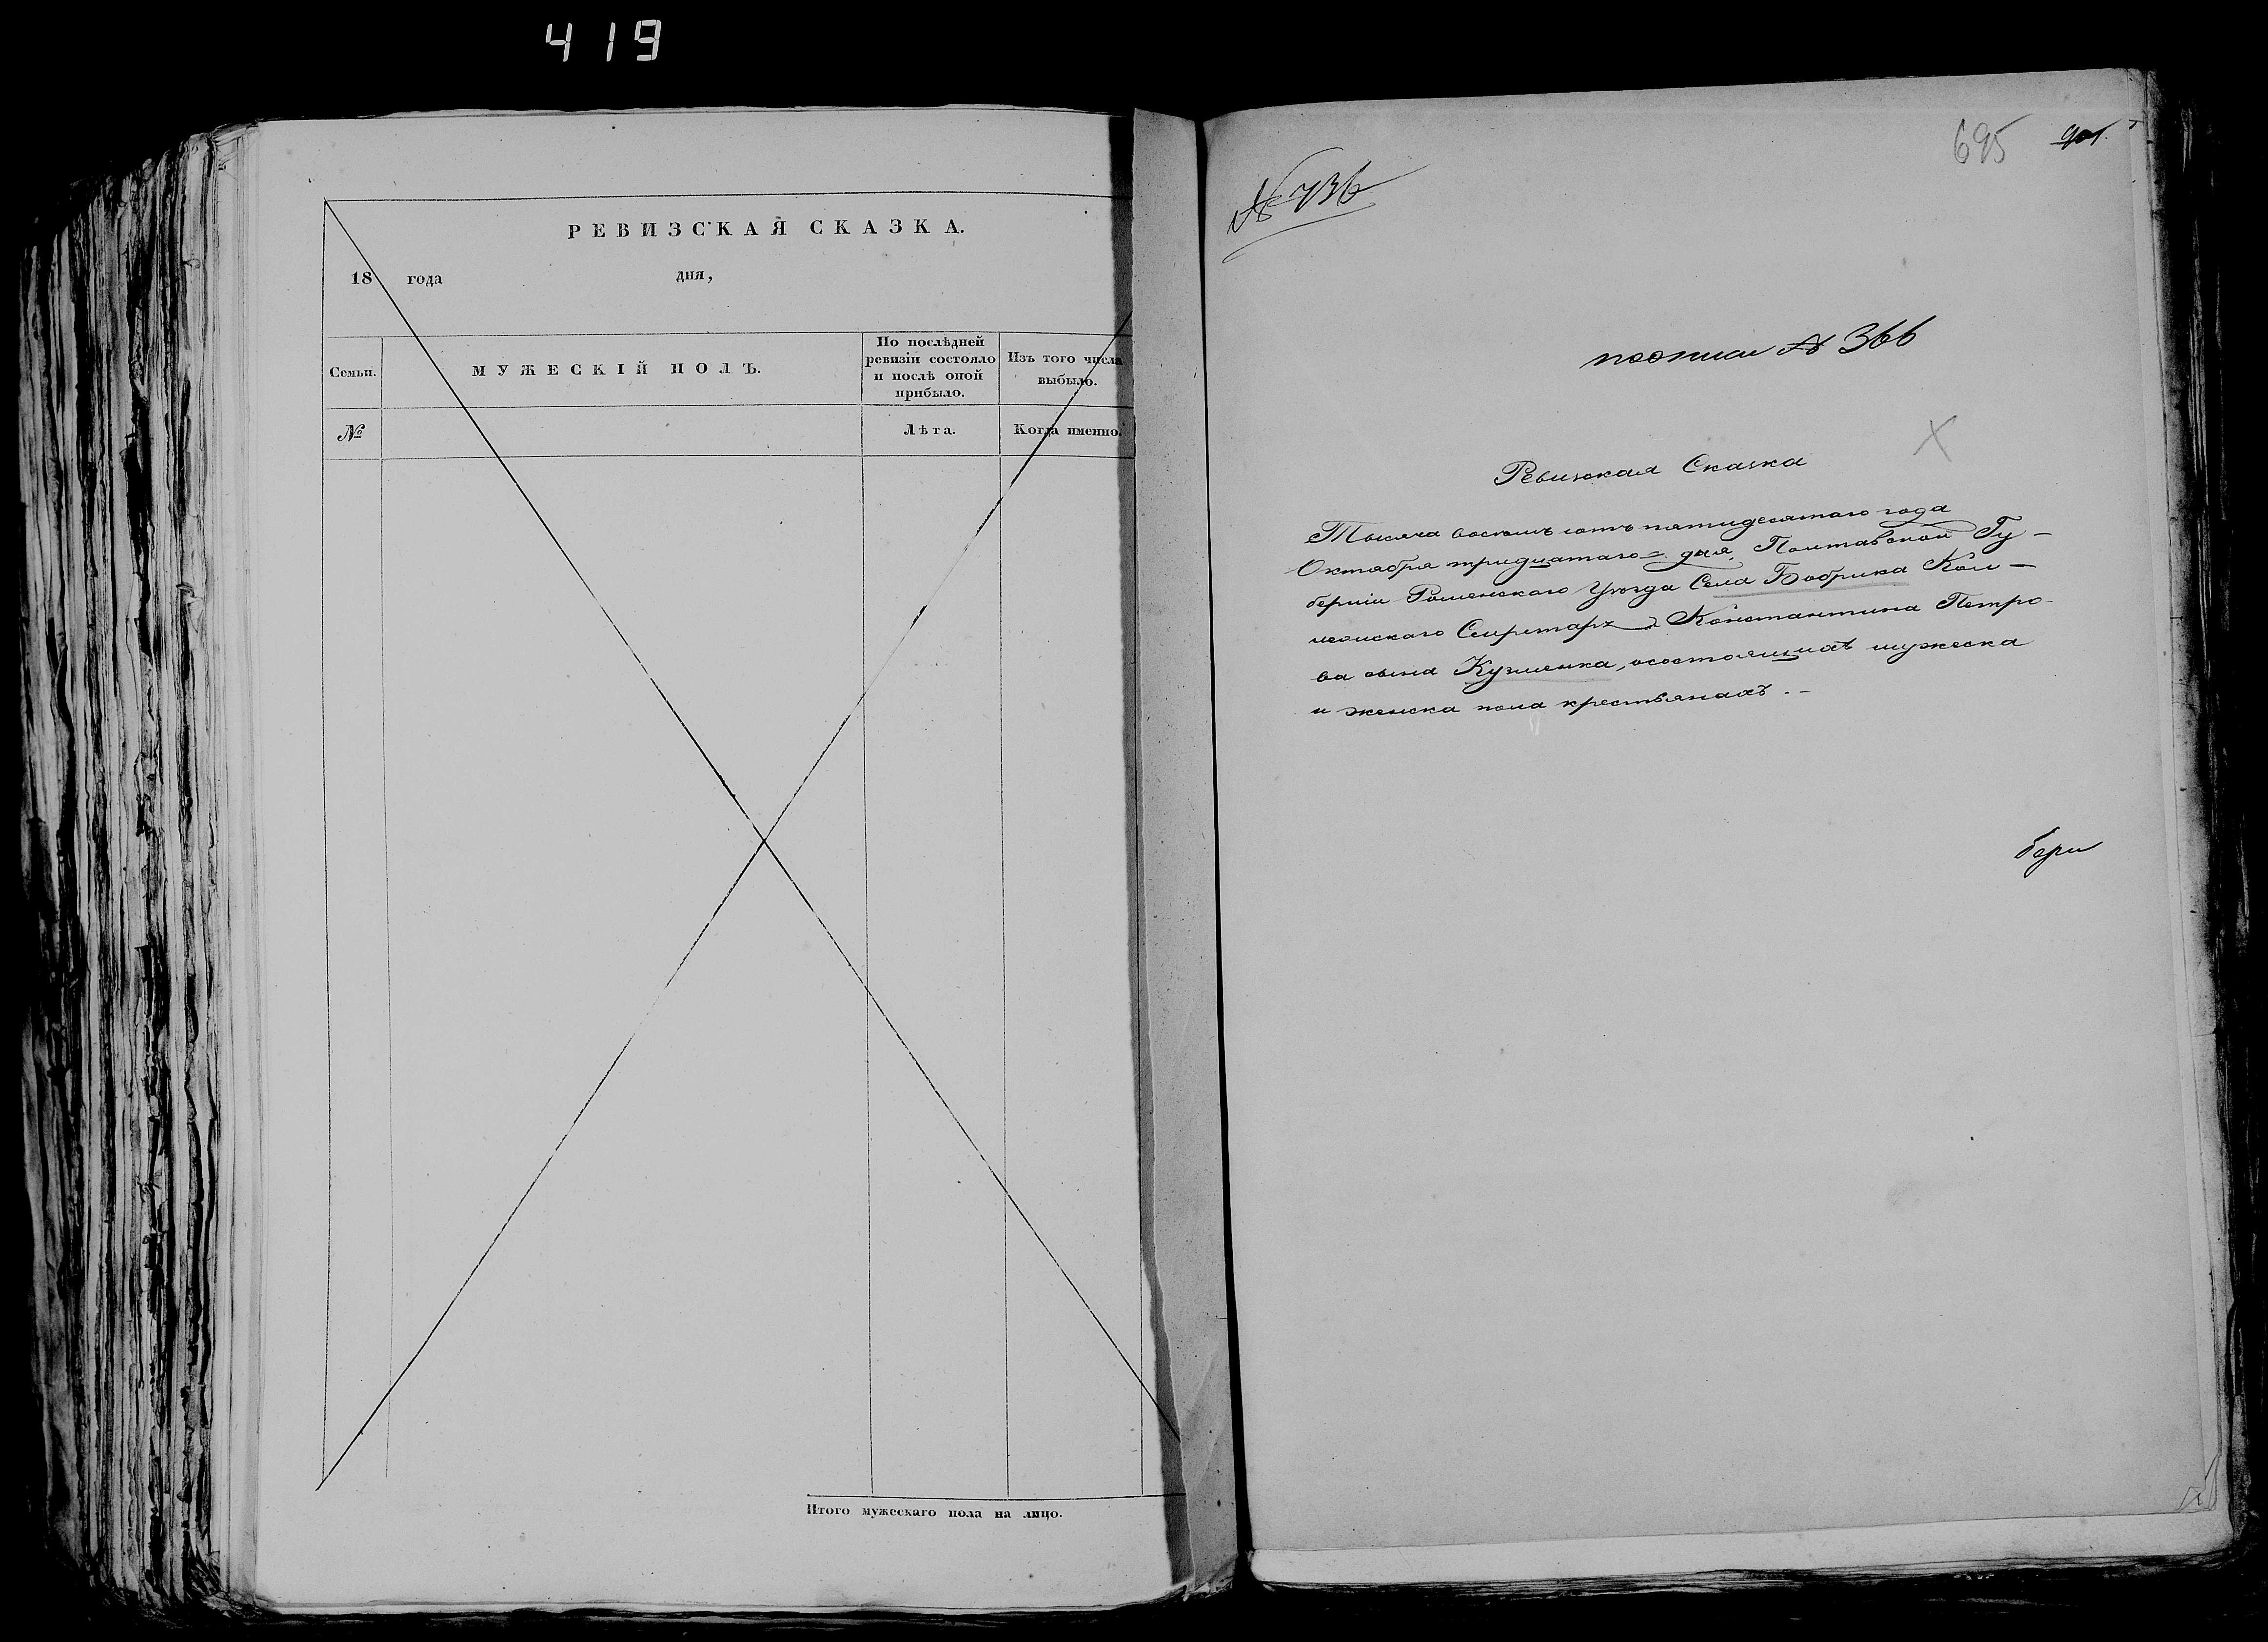 419
РЕВИЗСКАЯ СКАЗКА.
18 года дня,
Семьи.
МУЖЕСКІЙ ПОЛЪ.
По послѣдней
ревизіи состояло
и послѣ оной
прибыло.
Изъ того числа
выбыло.
№
Лѣта.
Когда именно.
Итого мужескаго пола на лицо.
695
№ 736
№ 366
Ревизская Сказка
Тысяча восемь сотъ пятидесятаго года
Октября тридцатаго дня. Полтавской Гу-
берніи Роменскаго Уѣзда Села Бобрика Кол-
лежскаго Секретаря Константина Петро-
ва сына Кузменка, осостоящихъ мужеска
и женска пола крестьянахъ.-